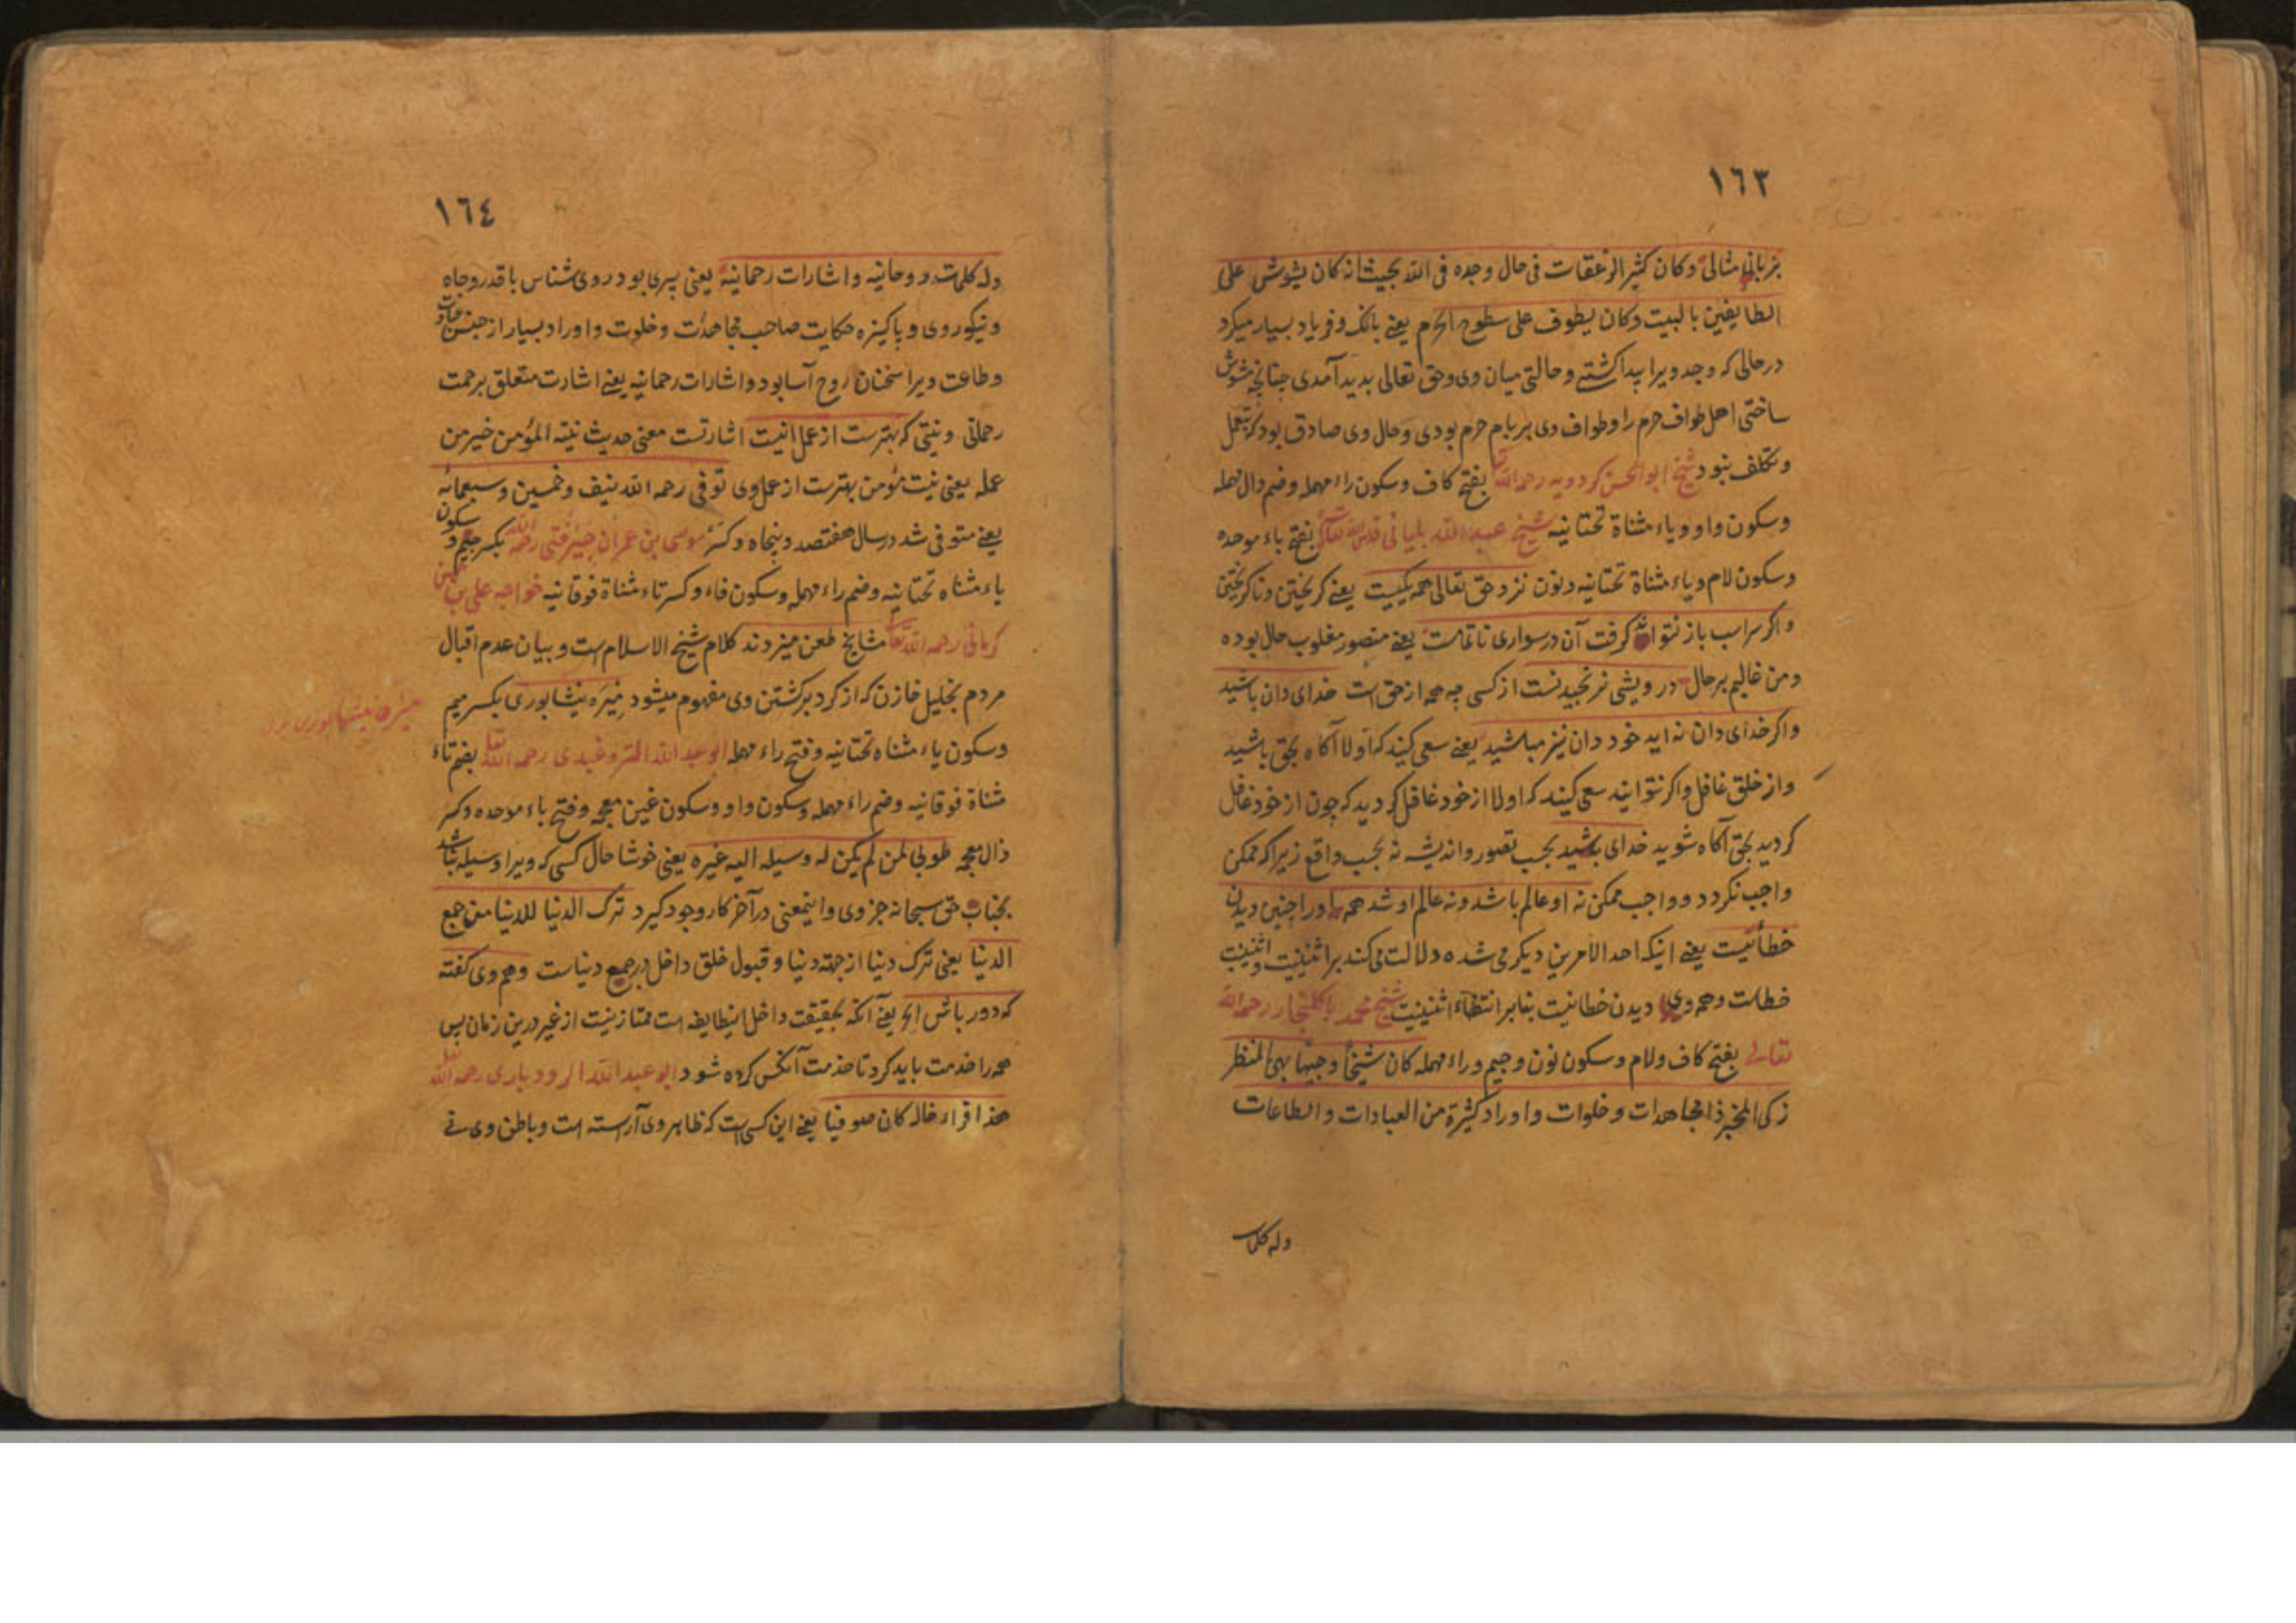 ١٦٣
بزبانی مثالی وکان کثیر الزعقات فی حال وجده فی الله بحیث انه کان یشوش علی
الطایفین بالبیت وکان یطوف علی سطوح الحرم یعنے بانک وفریاد بسیار میکرد
درحالی که وجد ویرا پیدا کشته وحالتی میان وی وحق تعالی بدید آمدی چنانچه مشوش
ساختی اهل طواف حرم را وطواف وی بر بام حرم بودی وحال وی صادق بود که بتعمل
وتکلف نبود شیخ ابو الحسن کردویه رحمه الله بفتح کاف وسکون راء مهمله وضم دال مهمله
وسکون واو ویاء مثناة تحتانیه شیخ عبد الله بلیانی بفتح باء موحده
وسکون لام ویاء مثناة تحتانیه ونون نزد حق تعالی همه یکیست یعنے کریختن وناکریختن
واکر سراب باز نتواند کرفت آن در سواری ناتمامست یعنے منصور مغلوب حال بوده
ومن غالبم بر حال درویشی نرنجیدنست از کسی چه همه از حق است خدای دان باشید
واکر خدای دان نه اید خود دان نیز مباشید یعنے سعی کنید که اولا آکاه بحق باشید
واز خلق غافل واکر نتوانید سعی کنید که اولا از خود غافل کردید که چون از خود غافل
کردید بحق آکاه شوید خدای باشید بحسب تصور واندیشه نه بحسب واقع زیرا که ممکن
واجب نکردد وواجب ممکن نه او عالم باشد ونه عالم او شد همه اورا چنین دیدن
خطائیست یعنے اینکه احد الامرین دیکر می شده دلالت می کند بر اثنینیت واثنینیت
خطاست وهمه وی دیدن خطا نیست بنابر انتفاء اثنینیت شیخ محمد باکلنجار رحمه الله
تعالی بفتح کاف ولام وسکون نون وجیم وراء مهمله کان شیخا وجیها بهی المنظر
زکی المخبر ذا مجاهدات وخلوات واوراد کثیرة من العبادات والطاعات
وله کلمات
١٦٤
وله کلمات روحانیه واشارات رحمانیه یعنی پیری بود روی شناس باقدر وجاه
ونیکوروی وپاکیزه حکایت صاحب مجاهدات وخلوت واوراد بسیار از جنس عبادات
وطاعت ویرا سخنان روح آسا بود واشارات رحمانیه یعنے اشارت متعلق برحمت
رحمانی ونیتی که بهترست از عمل انیت اشارتست معنی حدیث نیته المؤمن خیر من
عمله یعنی نیت مؤمن بهترست از عمل وی توفی رحمه الله نیف وخمسین وسبعمائه
یعنے متوفی شد در سال هفتصد وپنجاه وکسر موسی بن عمران جیرفتی رحمه الله بکسر جیم وسکون
یاء مثناه تحتانیه وضم راء مهمله وسکون فاء وکسر تاء مثناة فوقانیه خواجه علی بن حسن
کرمانی رحمه الله تعالی مشایخ طعن میزدند کلام شیخ الاسلام است وبیان عدم اقبال
مردم بخلیل خازن که از کرد برکشتن وی مفهوم میشود میره نیشابوری بکسر میم
میره نیشابوری
وسکون یاء مثناه تحتانیه وفتح راء مهمله ابو عبد الله التروغبدی رحمه الله تعالی بضم تاء
مثناة فوقانیه وضم راء مهمله وسکون واو وسکون غین معجمه وفتح باء موحده وکسر
ذال معجمه طوبی لمن لم یکن له وسیله الیه غیره یعنی خوشا حال کسی که ویرا وسیله نباشد
بجناب حق سبحانه جز وی واینمعنی در آخر کار وجود کیرد ترک الدنیا للدنیا من جمع
الدنیا یعنی ترک دنیا از جهة دنیا وقبول خلق داخل در جمع دنیاست وهم وی کفته
که دور باش الخ یعنے آنکه بحقیقت داخل اینطایفه است ممتاز نیست از غیر درین زمان پس
همه را خدمت باید کرد تا خدمت آنکس کرده شود ابو عبد الله الرودباری رحمه الله
هذا قراء خاله کان صوفیا یعنے این کسی است که ظاهر وی آراسته است وباطن وی نے